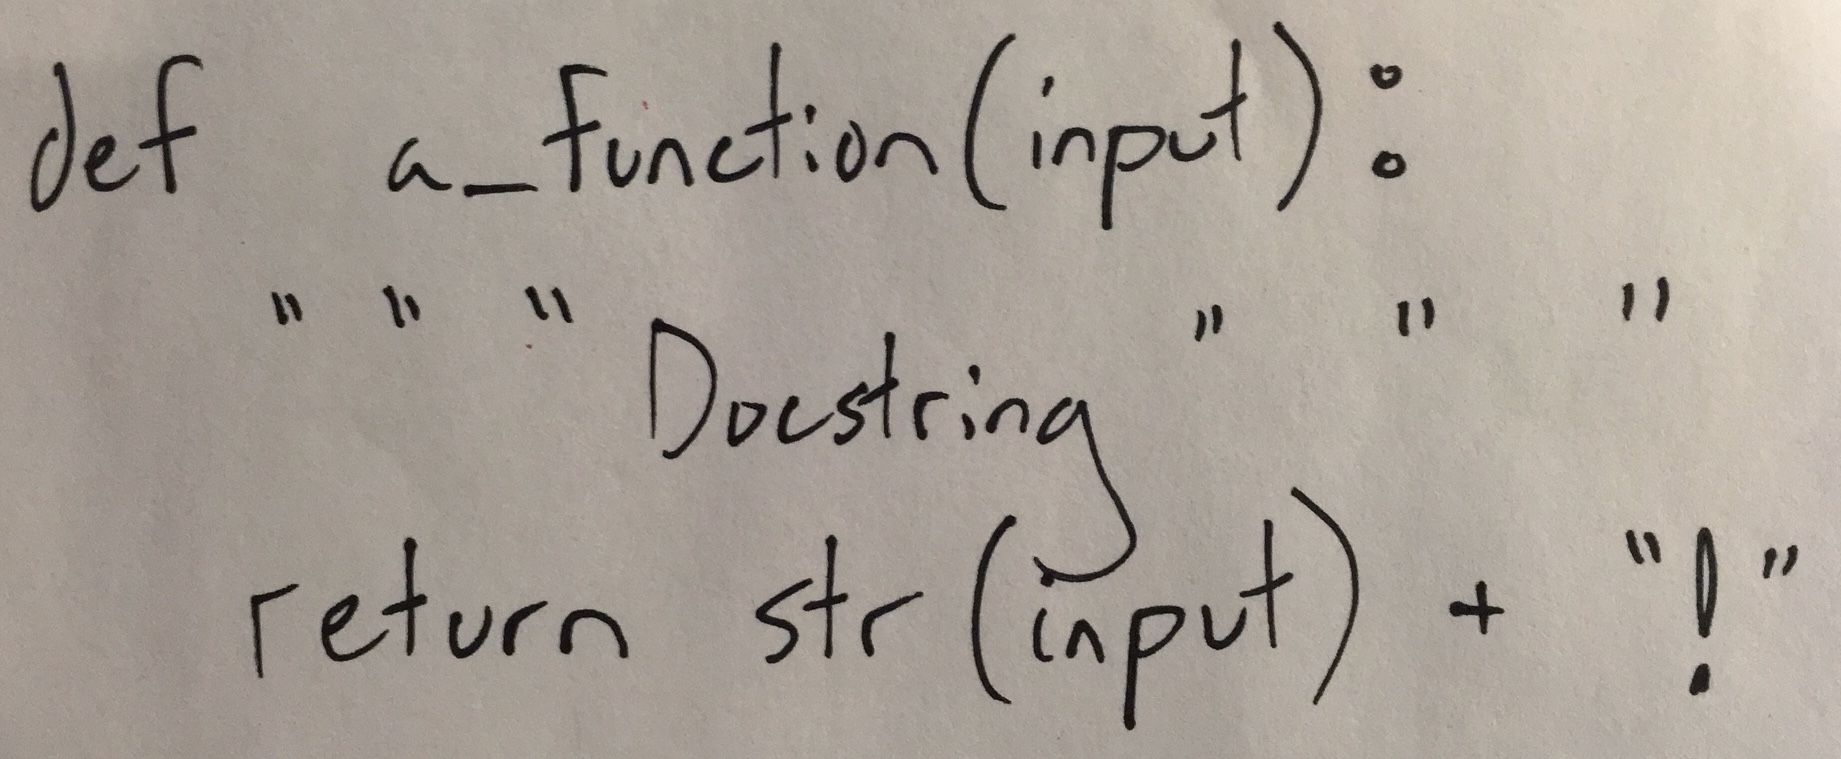 def a_function(input):
    """Docstring"""
    return str(input) + "!"